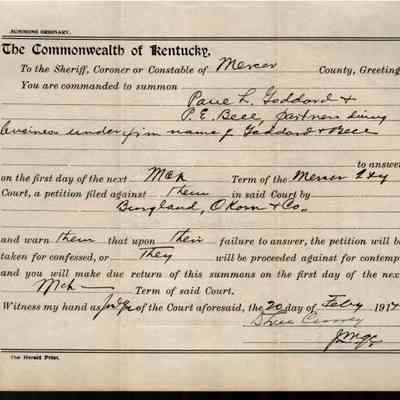 SUMMONS ORDINARY.
The Commonwealth of Kentucky.
To the Sheriff, Coroner or Constable of Mercer County, Greeting
You are commanded to summon
Paul L. Goddard &
P. E. Bell, partners doing
business under firm name of Goddard & Bell
to answer
on the first day of the next Mch Term of the Mercer
Court, a petition filed against them in said Court by
O'Korn & Co.,
and warn them that upon their failure to answer, the petition will be
taken for confessed, or They will be proceeded against for contemp
and you will make due return of this summons on the first day of the next
Mch Term of said Court.
Witness my hand as Judge of the Court aforesaid, the 20 day of Feby 191
The Herald Print.